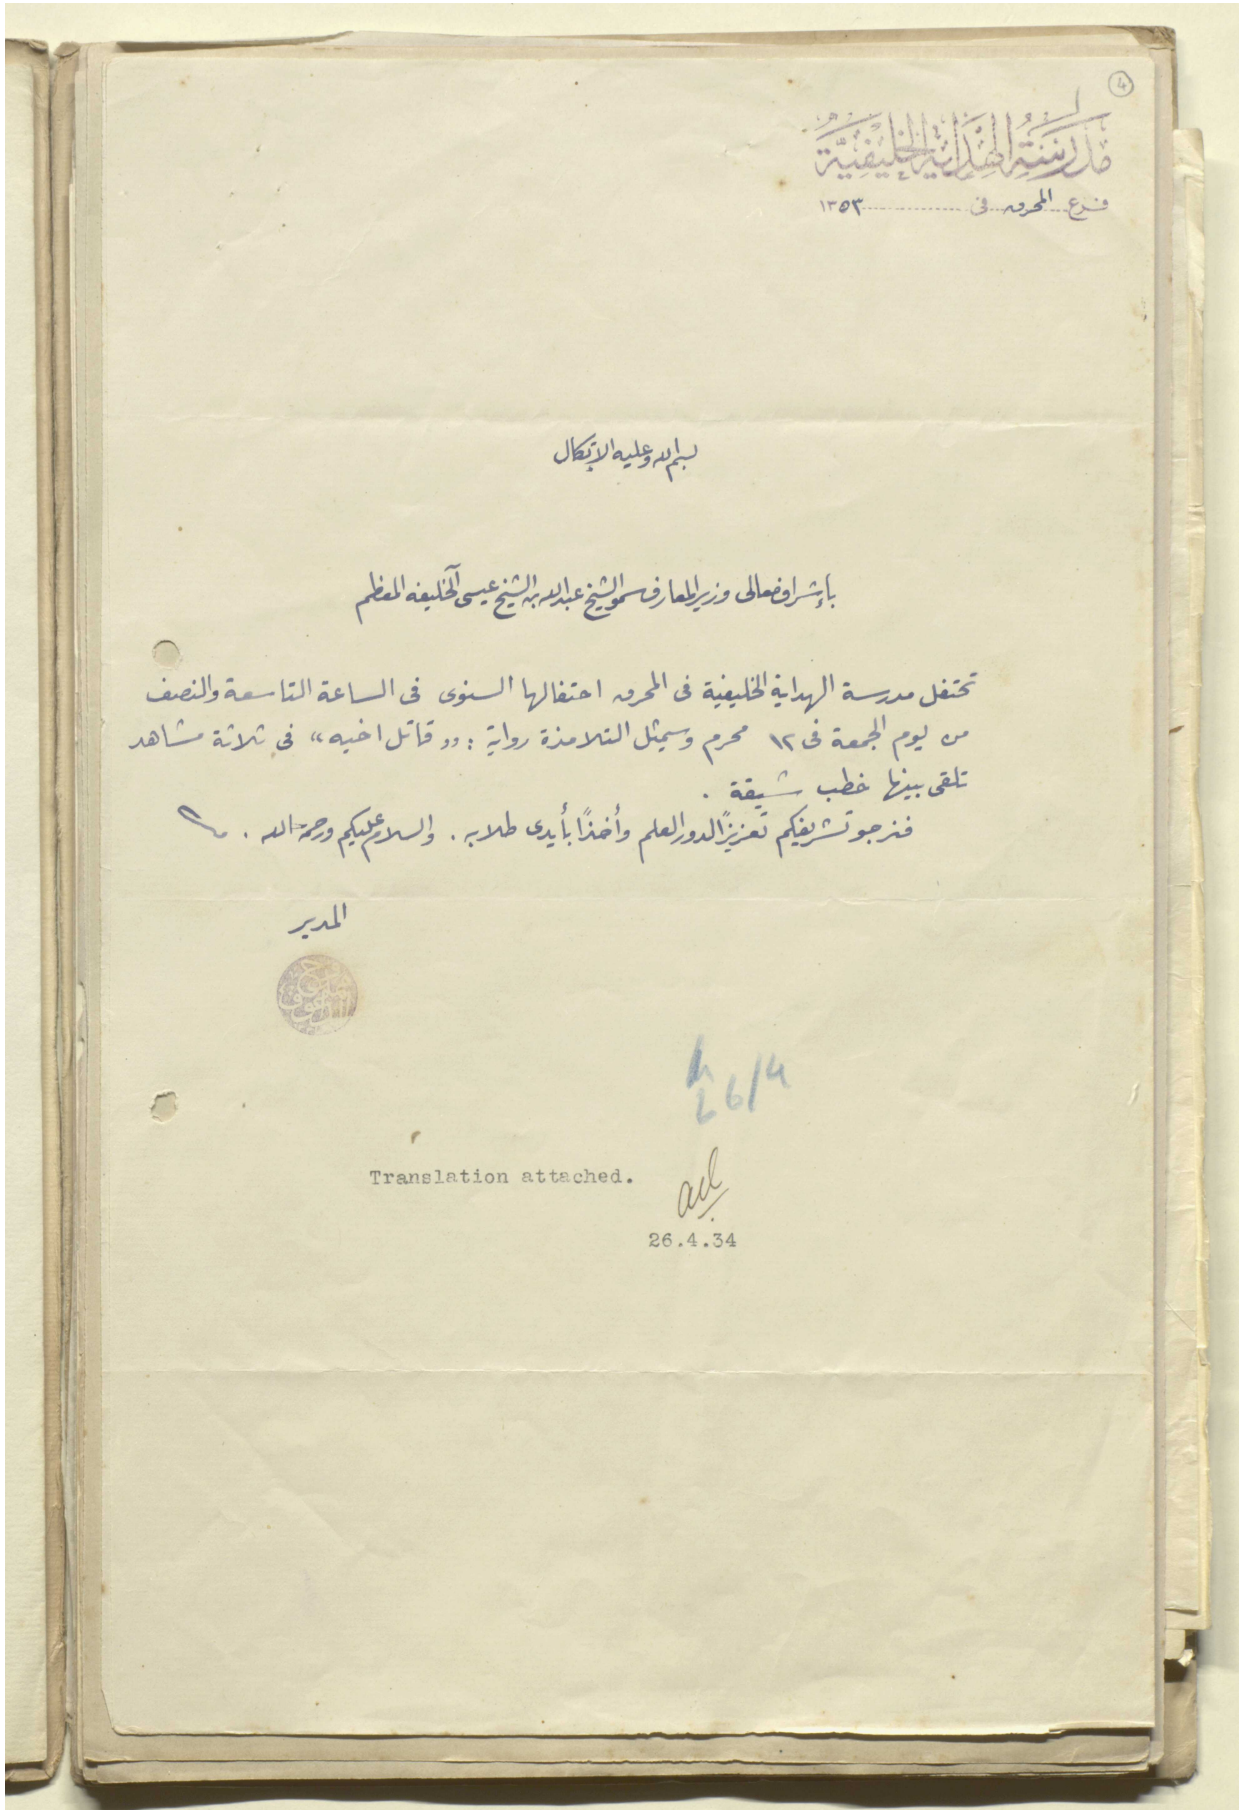 4
مدرسة الهداية الخليفية
فرع المحرق في ١٣٥٣
بسم الله وعليه الاتكال
بإشراف معالى وزير المعارف سمو الشيخ عبدالله بن الشيخ عيسى آل خليفه المعظم
تحتفل مدرسة الهداية الخليفية فى المحرق احتفالها السنوى فى الساعة التاسعة والنصف
من يوم الجمعة فى ١٢ محرم وسيمثل التلامذة رواية : „ قاتل اخيه “ فى ثلاثة مشاهد
تلقى بينها خطب شيقة .
فنرجو تشريفكم تعزيزًا لدور العلم وأخذًا بأيدى طلابه . والسلام عليكم ورحمة الله .
المدير
26/4
Translation attached.
26.4.34